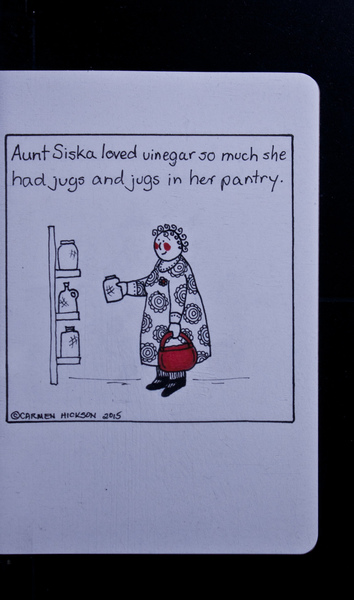 Aunt Siska loved vinegar so much she
had jugs and jugs in her pantry.
©CARMEN HICKSON 2015